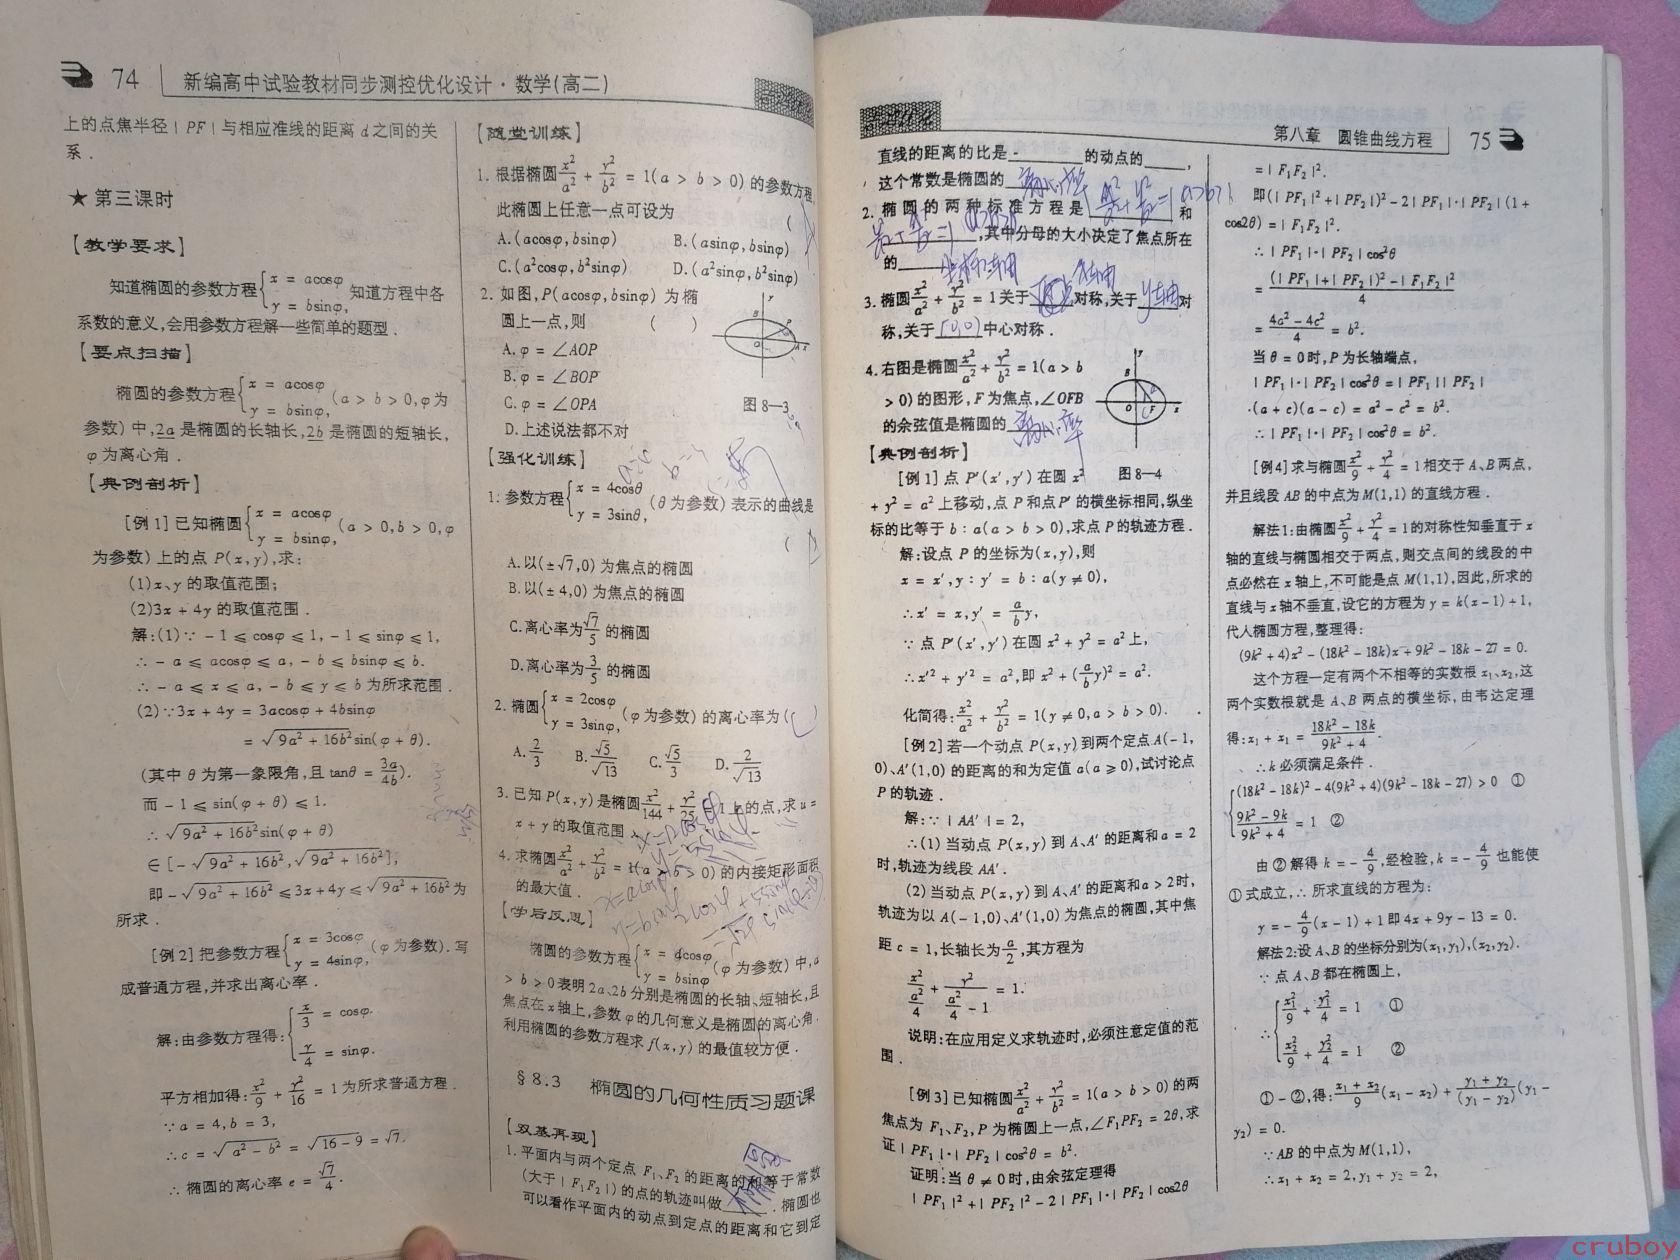 74 新编高中试验教材同步测控优化设计·数学(高二)
上的点焦半径|PF|与相应准线的距离d之间的关
系.
★第三课时
【教学要求】
知道椭圆的参数方程{x = acosφ
y = bsinφ, 知道方程中各
系数的意义,会用参数方程解一些简单的题型.
【要点扫描】
椭圆的参数方程{x = acosφ
y = bsinφ, (a > b > 0,φ为
参数)中,2a是椭圆的长轴长,2b是椭圆的短轴长,
φ为离心角.
【典例剖析】
[例1]已知椭圆{x = acosφ
y = bsinφ, (a > 0,b > 0,φ
为参数)上的点P(x,y),求:
(1)x、y的取值范围;
(2)3x + 4y的取值范围.
解:(1)∵ -1 ≤ cosφ ≤ 1, -1 ≤ sinφ ≤ 1,
∴ -a ≤ acosφ ≤ a, -b ≤ bsinφ ≤ b.
∴ -a ≤ x ≤ a, -b ≤ y ≤ b为所求范围.
(2)∵3x + 4y = 3acosφ + 4bsinφ
= √(9a² + 16b²)sin(φ + θ).
(其中θ为第一象限角,且tanθ = 3a/4b).
而 -1 ≤ sin(φ + θ) ≤ 1.
∴ √(9a² + 16b²)sin(φ + θ)
∈[-√(9a² + 16b²),√(9a² + 16b²)],
即-√(9a² + 16b²) ≤3x + 4y≤√(9a² + 16b²)为
所求.
[例2]把参数方程{x = 3cosφ
y = 4sinφ, (φ为参数).写
成普通方程,并求出离心率.
解:由参数方程得:{x/3 = cosφ.
y/4 = sinφ.
平方相加得:x²/9 + y²/16 = 1为所求普通方程.
∵a = 4,b = 3,
∴c = √(a² - b²) = √(16 - 9) = √7.
∴椭圆的离心率e = √7/4.
【随堂训练】
1.根据椭圆x²/a² + y²/b² = 1(a > b > 0)的参数方程,
此椭圆上任意一点可设为 (
A.(acosφ,bsinφ) B.(asinφ,bsinφ)
C.(a²cosφ,b²sinφ) D.(a²sinφ,b²sinφ)
2.如图,P(acosφ,bsinφ)为椭
圆上一点,则 ( )
A.φ = ∠AOP
B.φ = ∠BOP
C.φ = ∠OPA
D.上述说法都不对
y B P O A x
图8—3
【强化训练】
1.参数方程{x = 4cosθ
y = 3sinθ, (θ为参数)表示的曲线是
(
A.以(±√7,0)为焦点的椭圆
B.以(±4,0)为焦点的椭圆
C.离心率为√7/5的椭圆
D.离心率为3/5的椭圆
2.椭圆{x = 2cosφ
y = 3sinφ, (φ为参数)的离心率为( )
A.2/3 B.√5/√13 C.√5/3 D.2/√13
3.已知P(x,y)是椭圆x²/144 + y²/25 = 1上的点,求u =
x + y的取值范围
4.求椭圆x²/a² + y²/b² = 1(a > b > 0)的内接矩形面积
的最大值.
【学后反思】
椭圆的参数方程{x = acosφ
y = bsinφ (φ为参数)中,a
> b > 0表明2a、2b分别是椭圆的长轴、短轴长,且
焦点在x轴上,参数φ的几何意义是椭圆的离心角.
利用椭圆的参数方程求f(x,y)的最值较方便.
§8.3 椭圆的几何性质习题课
【双基再现】
1.平面内与两个定点F₁、F₂的距离的和等于常数
(大于|F₁F₂|)的点的轨迹叫做 椭圆 .椭圆也
可以看作平面内的动点到定点的距离和它到定
第八章 圆锥曲线方程 75
直线的距离的比是 的动点的 ,
这个常数是椭圆的 离心率
2.椭圆的两种标准方程是 x²/a²+y²/b²=1 a>b>1 和
,其中分母的大小决定了焦点所在
的 坐标轴
3.椭圆x²/a² + y²/b² = 1关于 x轴 对称,关于 y轴 对
称,关于 (0,0) 中心对称.
4.右图是椭圆x²/a² + y²/b² = 1(a > b
> 0)的图形,F为焦点,∠OFB
的余弦值是椭圆的 离心率
y B a O F x
图8—4
【典例剖析】
[例1]点P′(x′,y′)在圆x²
+ y² = a²上移动,点P和点P′的横坐标相同,纵坐
标的比等于b:a(a > b > 0),求点P的轨迹方程.
解:设点P的坐标为(x,y),则
x = x′,y:y′ = b:a(y≠0),
∴x′ = x,y′ = a/b y,
∵点P′(x′,y′)在圆x² + y² = a²上,
∴x′² + y′² = a²,即x² + (a/b y)² = a².
化简得:x²/a² + y²/b² = 1(y≠0,a > b > 0).
[例2]若一个动点P(x,y)到两个定点A(-1,
0)、A′(1,0)的距离的和为定值a(a≥0),试讨论点
P的轨迹.
解:∵|AA′| = 2,
∴(1)当动点P(x,y)到A、A′的距离和a = 2
时,轨迹为线段AA′.
(2)当动点P(x,y)到A、A′的距离和a > 2时,
轨迹为以A(-1,0)、A′(1,0)为焦点的椭圆,其中焦
距c = 1,长轴长为a/2,其方程为
x²/(a²/4) + y²/(a²/4 - 1) = 1.
说明:在应用定义求轨迹时,必须注意定值的范
围.
[例3]已知椭圆x²/a² + y²/b² = 1(a > b > 0)的两
焦点为F₁、F₂,P为椭圆上一点,∠F₁PF₂ = 2θ,求
证|PF₁|·|PF₂|cos²θ = b².
证明:当θ≠0时,由余弦定理得
|PF₁|² + |PF₂|² - 2|PF₁|·|PF₂|cos2θ
= |F₁F₂|².
即(|PF₁| + |PF₂|)² - 2|PF₁|·|PF₂|(1+
cos2θ) = |F₁F₂|².
∴|PF₁|·|PF₂|cos²θ
= ((|PF₁| + |PF₂|)² - |F₁F₂|²)/4
= (4a² - 4c²)/4 = b².
当θ = 0时,P为长轴端点,
|PF₁|·|PF₂|cos²θ = |PF₁||PF₂|
·(a + c)(a - c) = a² - c² = b².
∴|PF₁|·|PF₂|cos²θ = b².
[例4]求与椭圆x²/9 + y²/4 = 1相交于A、B两点,
并且线段AB的中点为M(1,1)的直线方程.
解法1:由椭圆x²/9 + y²/4 = 1的对称性知垂直于x
轴的直线与椭圆相交于两点,则交点间的线段的中
点必然在x轴上,不可能是点M(1,1),因此,所求的
直线与x轴不垂直,设它的方程为y = k(x-1)+1,
代人椭圆方程,整理得:
(9k² + 4)x² - (18k² - 18k)x + 9k² - 18k - 27 = 0.
这个方程一定有两个不相等的实数根x₁、x₂,这
两个实数根就是A、B两点的横坐标,由韦达定理
得:x₁ + x₁ = (18k² - 18k)/(9k² + 4).
∴k必须满足条件.
{(18k² - 18k)² - 4(9k² + 4)(9k² - 18k - 27) > 0 ①
(9k² - 9k)/(9k² + 4) = 1 ②
由②解得k = -4/9,经检验,k = -4/9也能使
①式成立,∴所求直线的方程为:
y = -4/9(x - 1) + 1即4x + 9y - 13 = 0.
解法2:设A、B的坐标分别为(x₁,y₁),(x₂,y₂).
∵点A、B都在椭圆上,
∴{x₁²/9 + y₁²/4 = 1 ①
x₂²/9 + y₂²/4 = 1 ②
①-②,得:(x₁ + x₂)/9(x₁ - x₂) + (y₁ + y₂)/(y₁ - y₂)(y₁ -
y₂) = 0.
∵AB的中点为M(1,1),
∴x₁ + x₂ = 2,y₁ + y₂ = 2,
cruboy